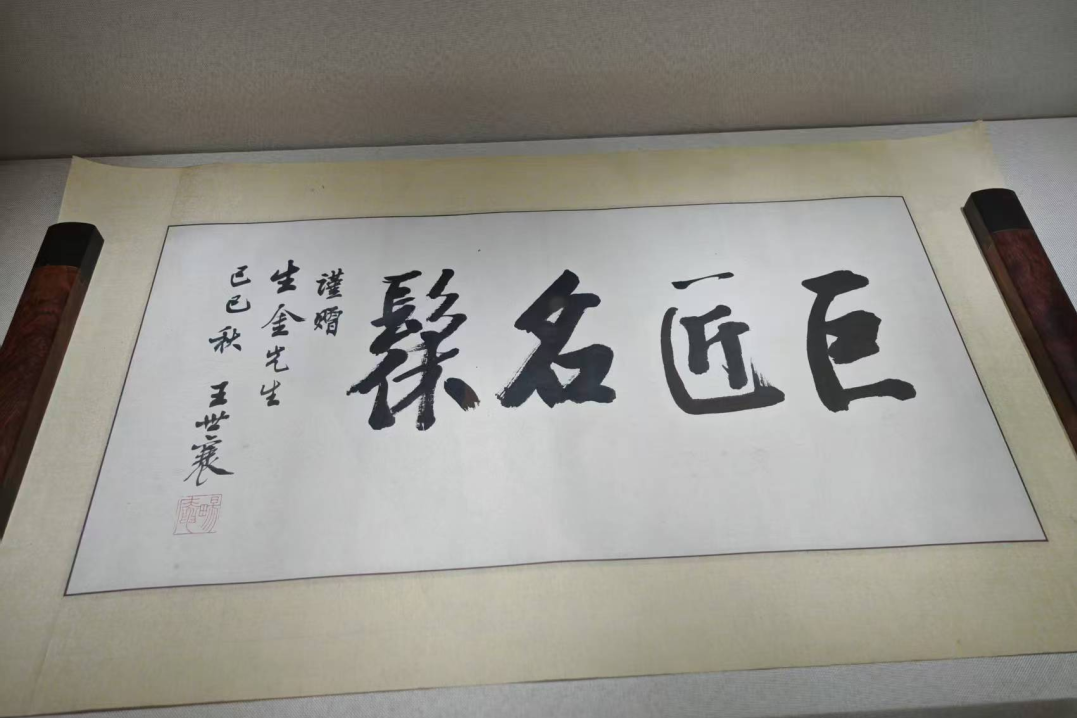 巨匠名髹
謹贈
生金先生
己巳秋 王世襄